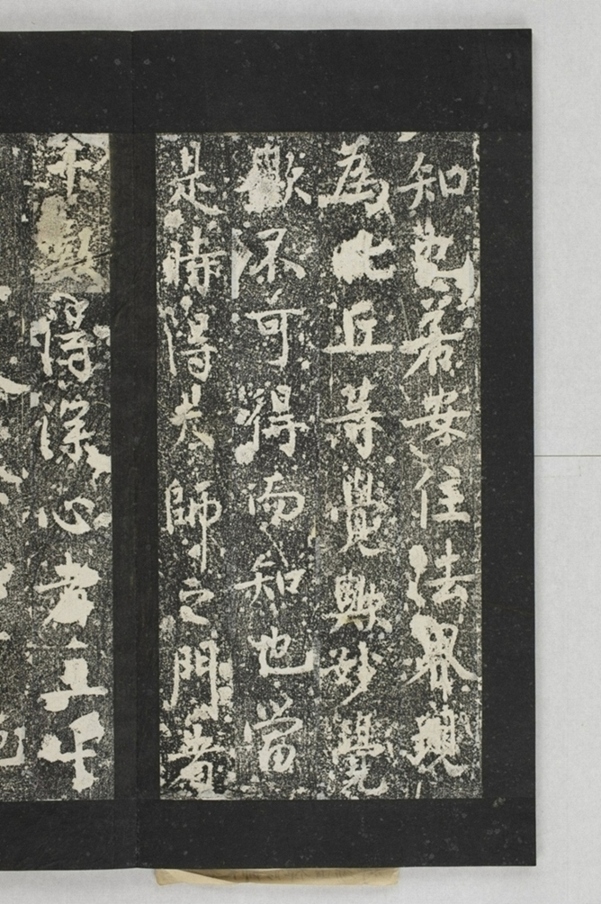 知也若安住法界現
為比丘等覺歟妙覺
歟不可得而知也當
是時得大師之門者
千數得深心者五